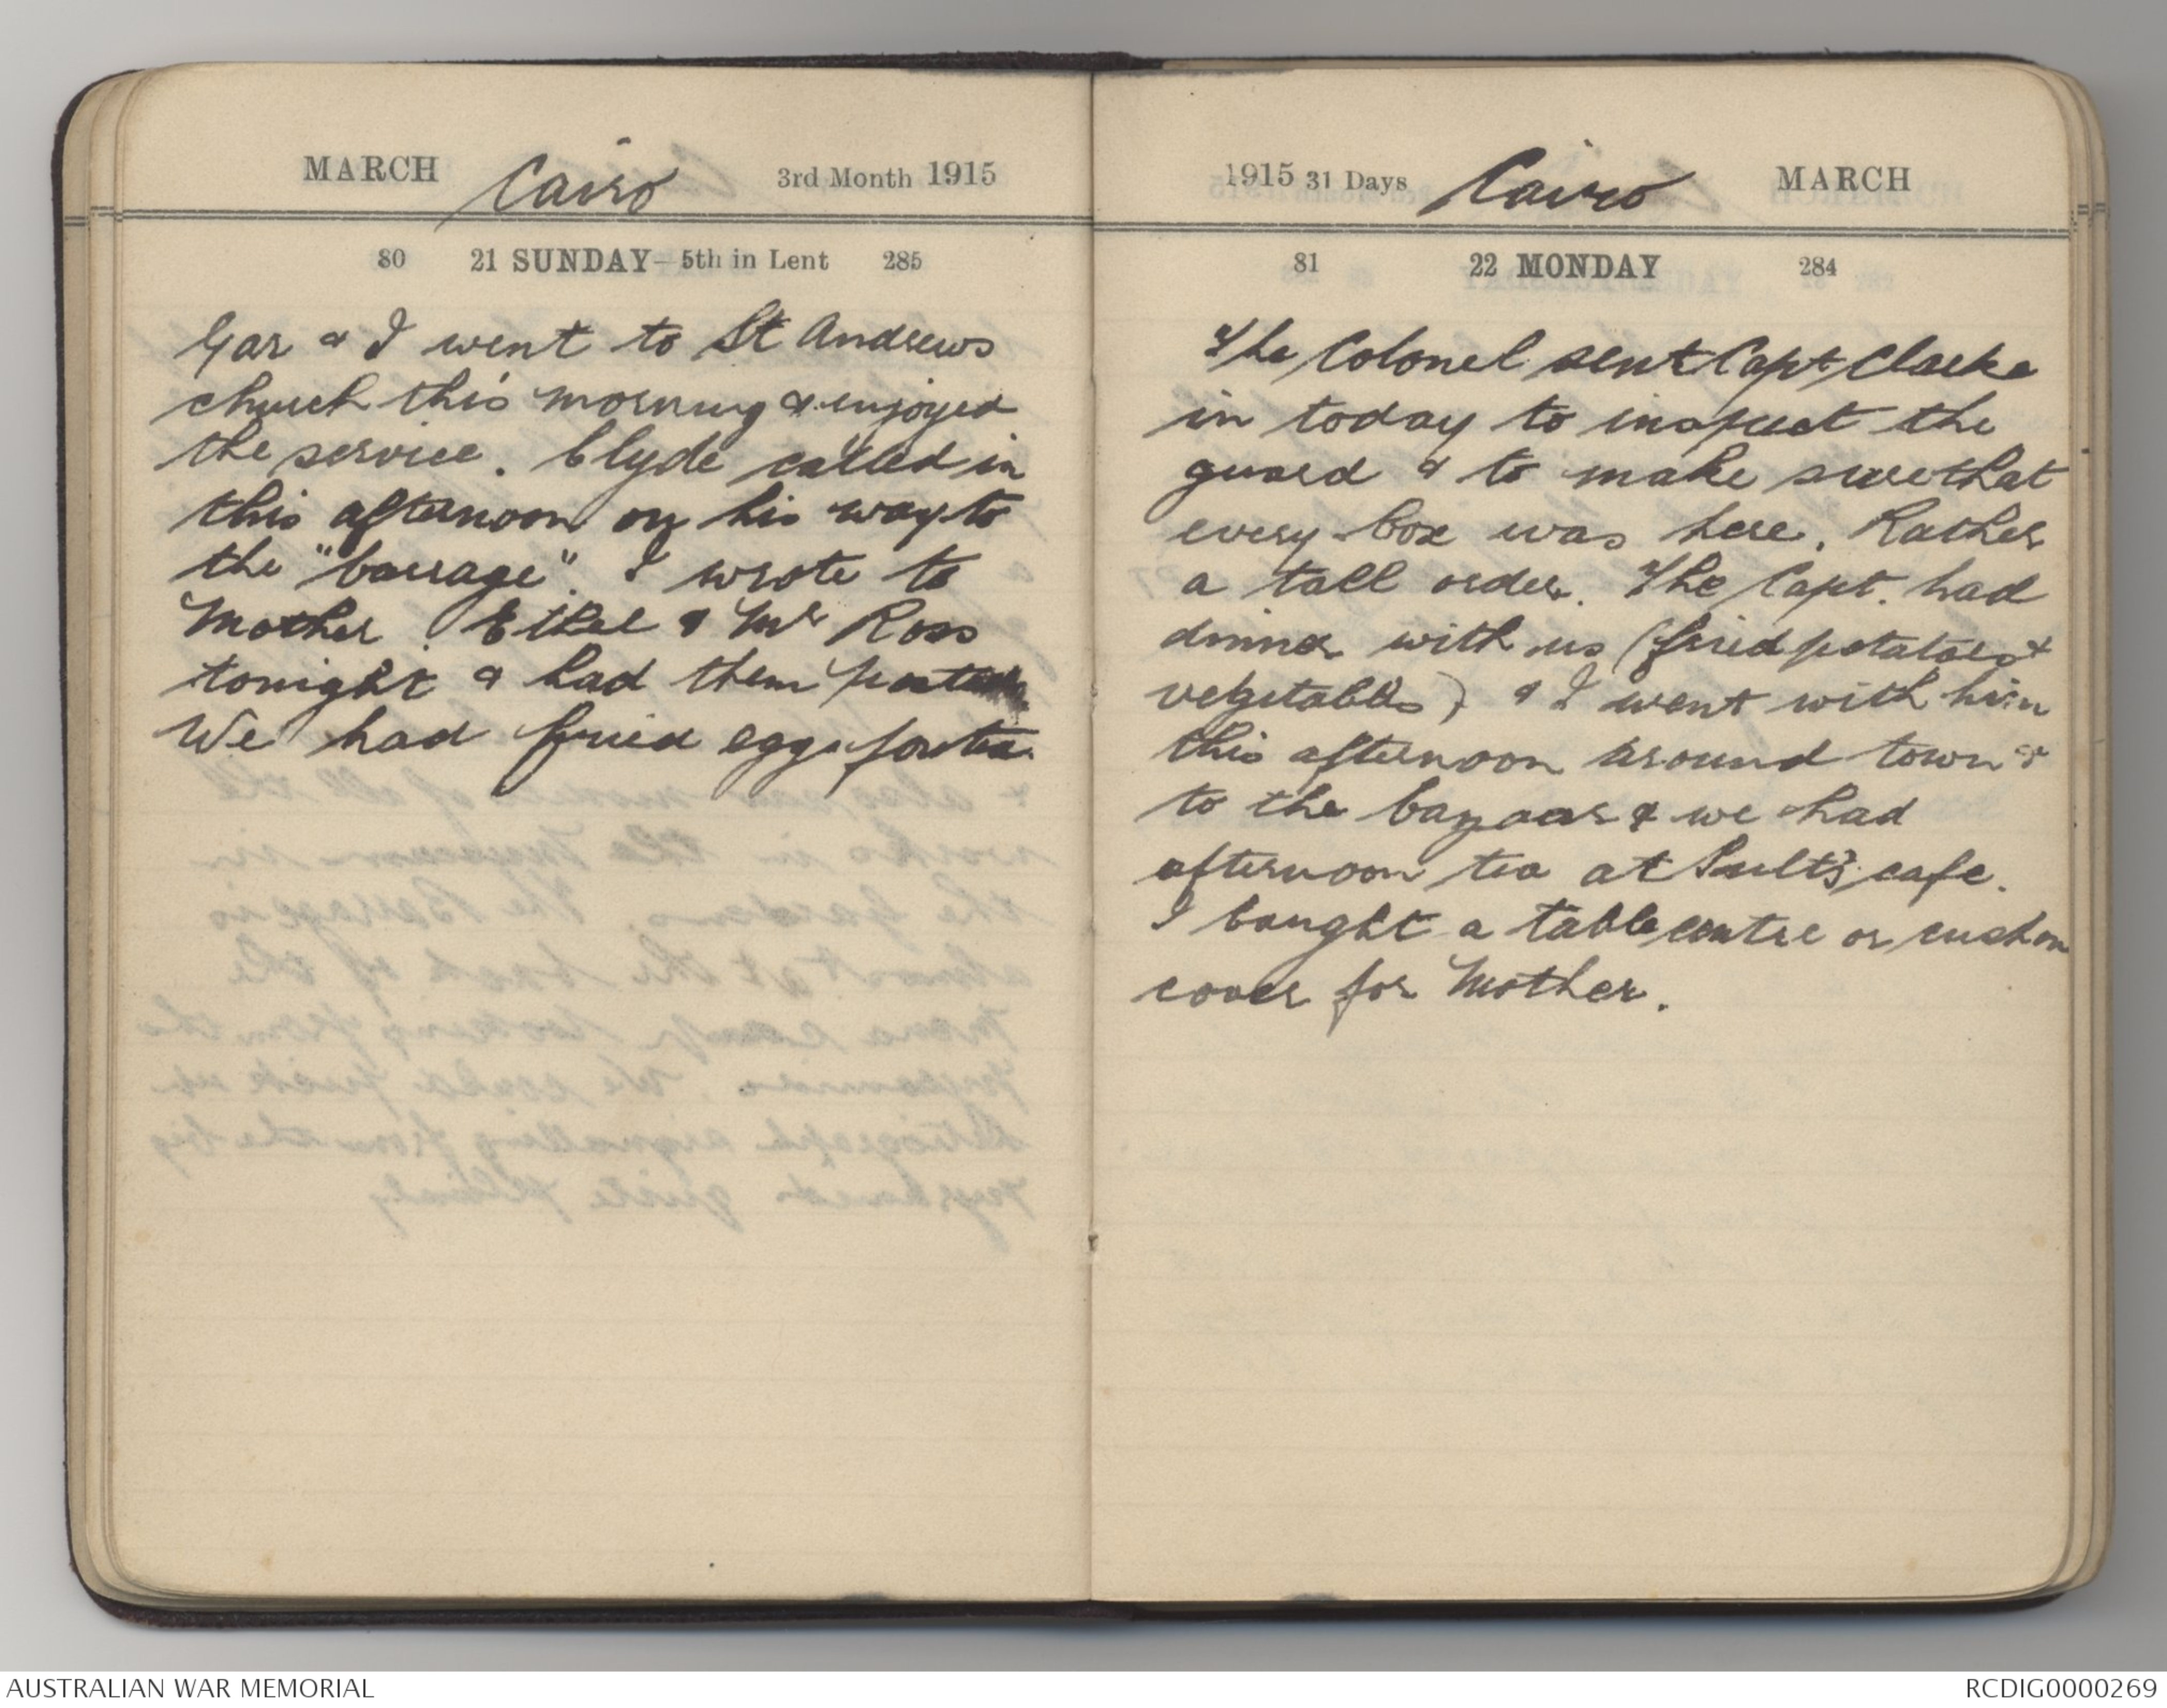 MARCH Cairo 3rd Month 1915
80 21 SUNDAY—5th in Lent 285
Gar & I went to St Andrews
church this morning & enjoyed
the service. Clyde called in
this afternoon on his way to
the "barrage". I wrote to
Mother. Ethel & Mr Ross
tonight & had them posted
We had fried eggs for tea.
1915 31 Days Cairo MARCH
81 22 MONDAY 284
The Colonel sent Capt Clarke
in today to inspect the
guard & to make sure that
every box was here. Rather
a tall order. The Capt. had
dinner with us (fried potatoes &
vegetables) & I went with him
this afternoon around town &
to the bazaars & we had
afternoon tea at cafe.
I bought a table centre or cushon
cover for Mother.
AUSTRALIAN WAR MEMORIAL
RCDIG0000269